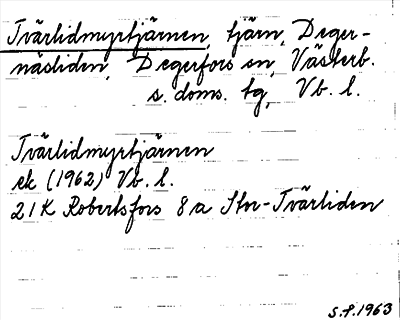 Tvärlidmyrtjärnen, tjärn, Deger-
näsliden, Degerfors sn, Västerb.
s. doms. tg, Vb. l.
Tvärlidmyrtjärnen
ek (1962) Vb. l.
21K Robertsfors 8a Stor-Tvärliden
S.P. 1963